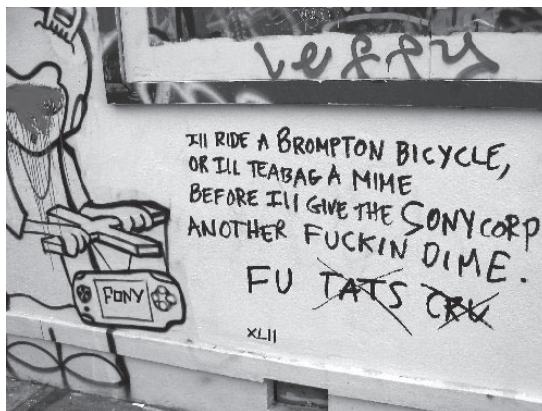 Ill RIDE A BROMPTON BICYCLE,
OR Ill TEABAG A MIME
BEFORE Ill GIVE THE SONY CORP
ANOTHER FUCKIN DIME.
FU TATS CRU
XLII
FONY